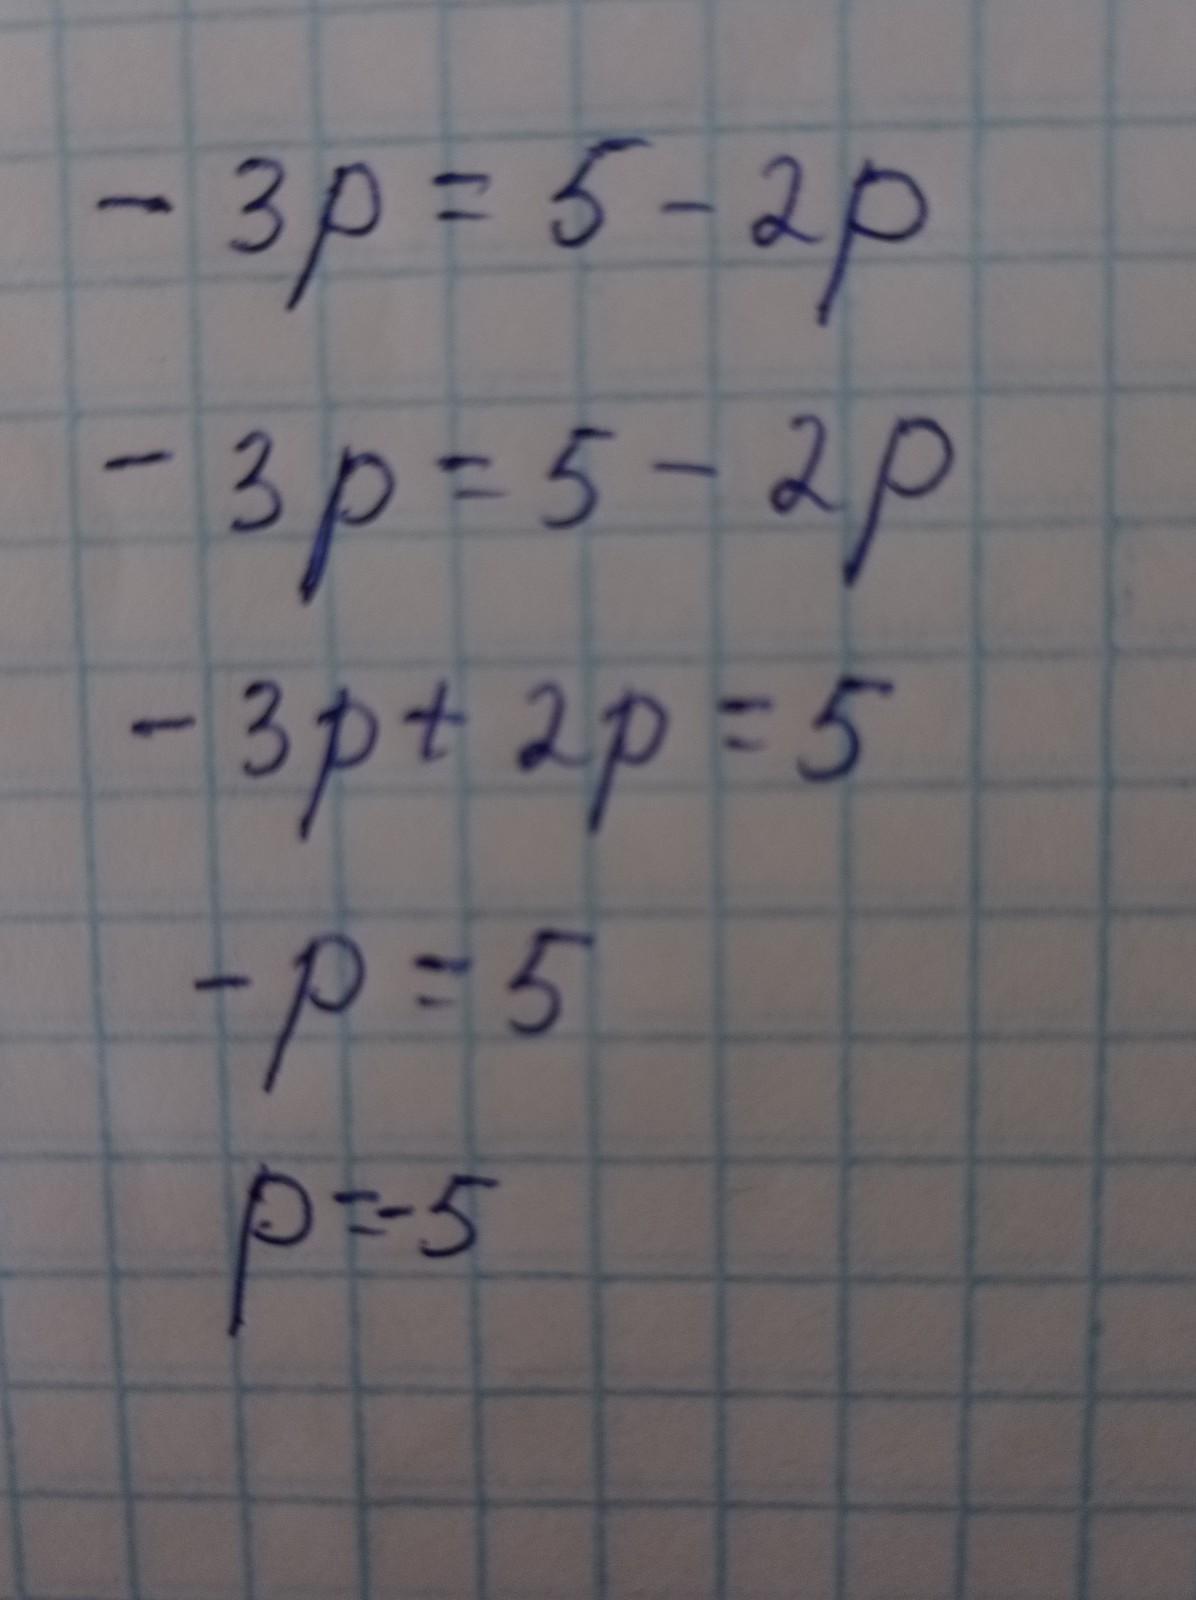 - 3p = 5 - 2p
- 3p = 5 - 2p
- 3p + 2p = 5
- p = 5
p = -5